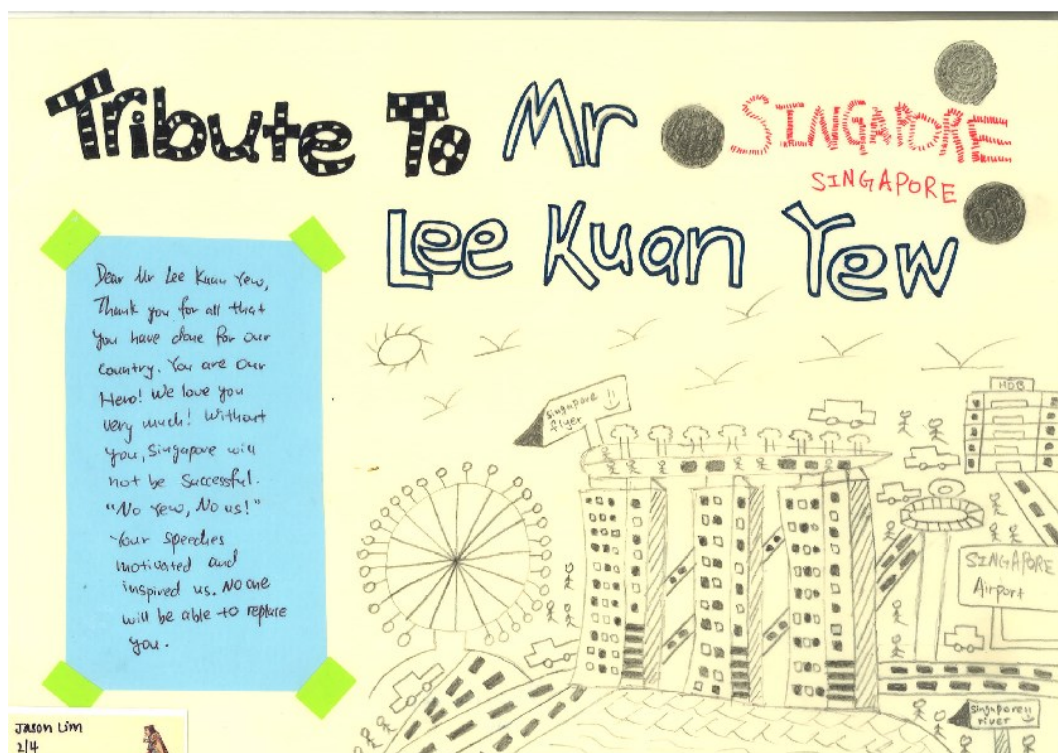 Tribute To Mr
Lee Kuan Yew
SINGAPORE
SINGAPORE
Dear Mr Lee Kuan Yew,
Thank you for all that
you have done for our
country. You are our
Hero! We love you
very much! Without
you, Singapore will
not be successful.
"No Yew, No us!"
Your speeches
motivated and
inspired us. No one
will be able to replace
you.
Singapore
flyer
HDB
SINGAPORE
Airport
Singapore
river
Jason Lim
2/4